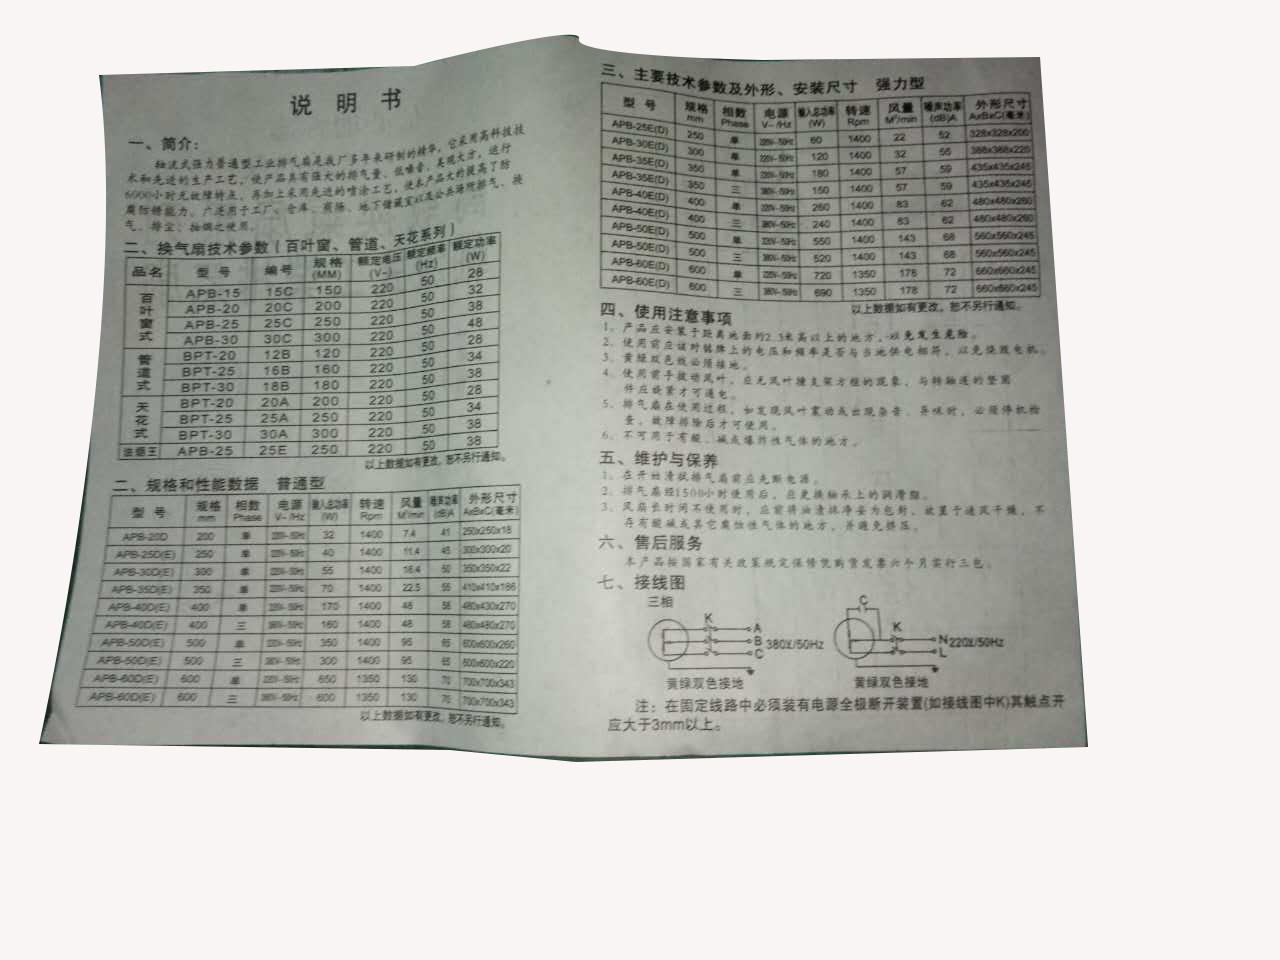 说 明 书
一、简介:
轴流式强力普通型工业排气扇是我厂多年来研制的精华，它采用高科技技
术和先进的生产工艺，使产品具有强大的排气量、低噪音、美观大方，运行
6000小时无故障特点，再加上采用先进的喷涂工艺，使本产品大的提高了防
腐防锈能力。广泛用于工厂、仓库、商场、地下储藏室以及公共场所排气、换
气、排尘、抽烟之使用。
二、换气扇技术参数（百叶窗、管道、天花系列）
品名 型 号 编号 规格(MM) 额定电压(V~) 额定频率(Hz) 额定功率(W)
百叶窗式 APB-15 15C 150 220 50 28
APB-20 20C 200 220 50 32
APB-25 25C 250 220 50 38
APB-30 30C 300 220 50 48
管道式 BPT-20 12B 120 220 50 28
BPT-25 16B 160 220 50 34
BPT-30 18B 180 220 50 38
天花式 BPT-20 20A 200 220 50 28
BPT-25 25A 250 220 50 34
BPT-30 30A 300 220 50 38
APB-25 25E 250 220 50 38
以上数据如有更改，恕不另行通知。
二、规格和性能数据 普通型
型 号 规格mm 相数Phase 电源V~/Hz 输入总功率(W) 转速Rpm 风量M³/min 噪声功率(dB)A 外形尺寸AxBxC(毫米)
APB-20D 200 单 220V~50Hz 32 1400 7.4 41 250x250x18
APB-25D(E) 250 单 220V~50Hz 40 1400 11.4 45 300x300x20
APB-30D(E) 300 单 220V~50Hz 55 1400 16.4 50 350x350x22
APB-35D(E) 350 单 220V~50Hz 70 1400 22.5 55 410x410x186
APB-40D(E) 400 单 220V~50Hz 170 1400 48 58 480x430x270
APB-40D(E) 400 三 380V~50Hz 160 1400 48 58 480x480x270
APB-50D(E) 500 单 220V~50Hz 350 1400 95 65 600x600x260
APB-50D(E) 500 三 380V~50Hz 300 1400 95 65 600x600x220
APB-60D(E) 600 单 220V~50Hz 650 1350 130 70 700x700x343
APB-60D(E) 600 三 380V~50Hz 600 1350 130 70 700x700x343
以上数据如有更改，恕不另行通知。
三、主要技术参数及外形、安装尺寸 强力型
型 号 规格mm 相数Phase 电源V~/Hz 输入总功率(W) 转速Rpm 风量M³/min 噪声功率(dB)A 外形尺寸AxBxC(毫米)
APB-25E(D) 250 单 220V~50Hz 60 1400 22 52 328x328x200
APB-30E(D) 300 单 220V~50Hz 120 1400 32 56 388x388x220
APB-35E(D) 350 单 220V~50Hz 180 1400 57 59 435x435x245
APB-35E(D) 350 三 380V~50Hz 150 1400 57 59 435x435x245
APB-40E(D) 400 单 220V~50Hz 260 1400 83 62 480x480x260
APB-40E(D) 400 三 380V~50Hz 240 1400 83 62 480x480x260
APB-50E(D) 500 单 220V~50Hz 550 1400 143 68 560x560x245
APB-50E(D) 500 三 380V~50Hz 520 1400 143 68 560x560x245
APB-60E(D) 600 单 220V~50Hz 720 1350 178 72 660x660x245
APB-60E(D) 600 三 380V~50Hz 690 1350 178 72 660x660x245
以上数据如有更改，恕不另行通知。
四、使用注意事项
1、产品应安装于距离地面约2.3米高以上的地方，以免发生危险。
2、使用前应该对铭牌上的电压和频率是否与当地供电相符，以免烧毁电机。
3、黄绿双色线必须接地。
4、使用前手拨动风叶，应无风叶撞支架方框的现象，与转轴连的坚固
件应旋紧才可通电。
5、排气扇在使用过程，如发现风叶震动或出现杂音、异味时，必须停机检
查，故障排除后才可使用。
6、不可用于有酸、碱或爆炸性气体的地方。
五、维护与保养
1、在开始清拭排气扇前应先断电源。
2、排气扇经1500小时使用后，应更换轴承上的润滑脂。
3、风扇长时间不使用时，应前将油渍抹净妥为包封，放置于通风干燥，不
存有酸碱或其它腐蚀性气体的地方，并避免挤压。
六、售后服务
本产品按国家有关政策规定保修凭购货发票六个月实行三包。
七、接线图
三相
K
A
B
C
380V/50Hz
黄绿双色接地
C
K
N
L
220V/50Hz
黄绿双色接地
注：在固定线路中必须装有电源全极断开装置(如接线图中K)其触点开
应大于3mm以上。